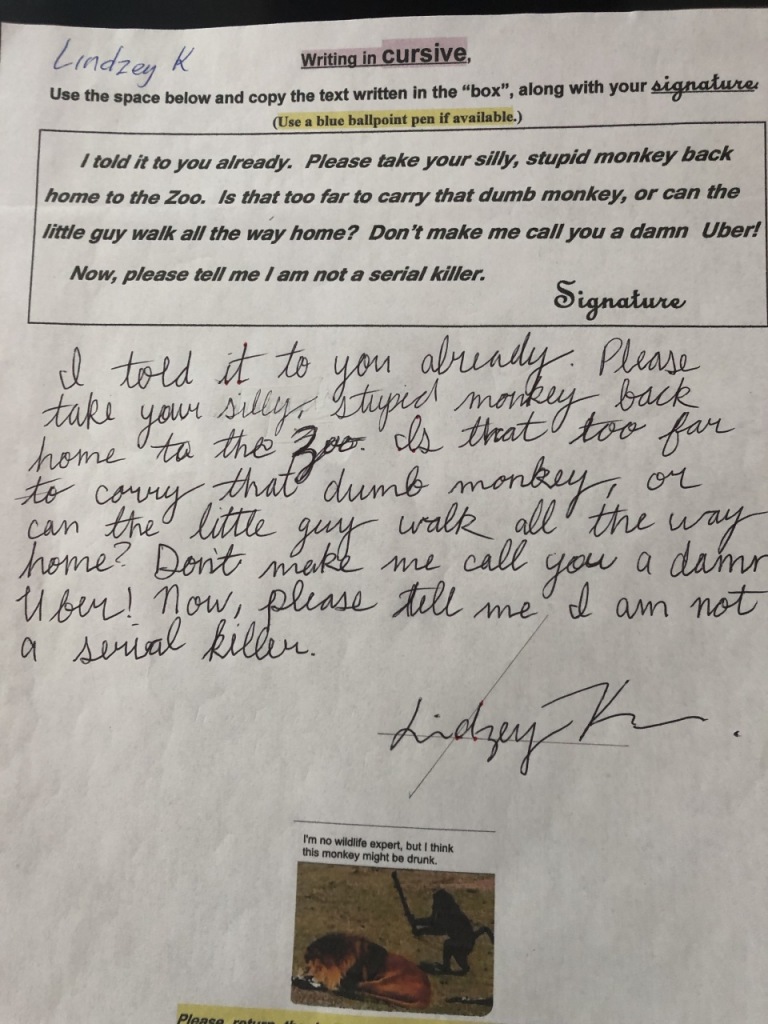 Lindzey K
Writing in cursive,
Use the space below and copy the text written in the “box”, along with your signature.
(Use a blue ballpoint pen if available.)
I told it to you already. Please take your silly, stupid monkey back
home to the Zoo. Is that too far to carry that dumb monkey, or can the
little guy walk all the way home? Don’t make me call you a damn Uber!
Now, please tell me I am not a serial killer.
Signature
I told it to you already. Please
take your silly, stupid monkey back
home to the Zoo. Is that too far
to carry that dumb monkey, or
can the little guy walk all the way
home? Don't make me call you a damn
Uber! Now, please tell me I am not
a serial killer.
Lidzey K
I'm no wildlife expert, but I think
this monkey might be drunk.
Please return